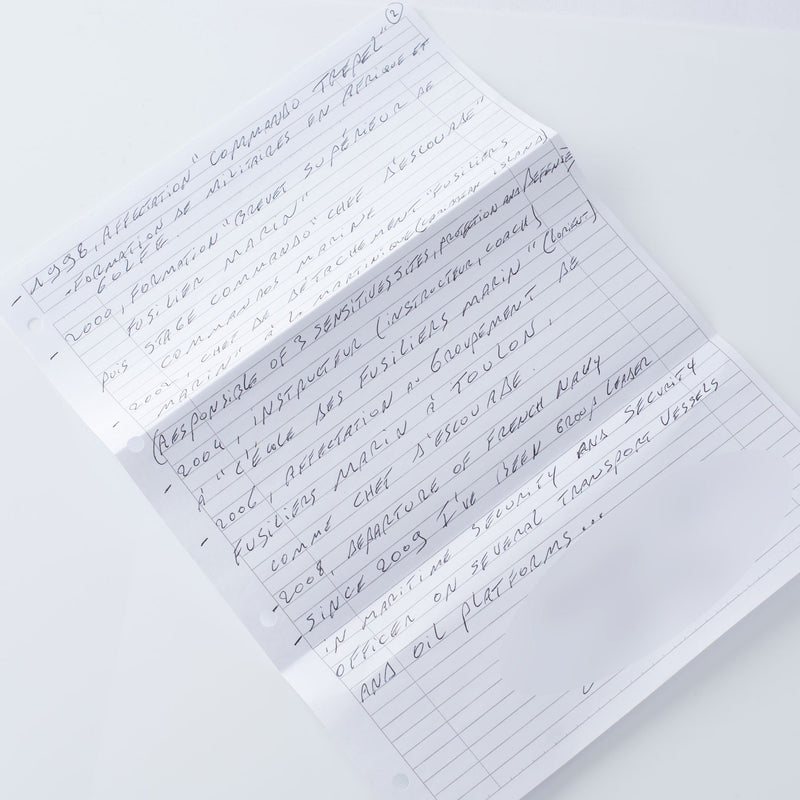 2
- 1998, AFFECTATION "COMMANDO TREPEL"
- FORMATION DE MILITAIRES EN AFRIQUE ET
GOLFE.
- 2000, FORMATION "BREVET SUPÉRIEUR DE
FUSILIER MARIN"
PUIS STAGE COMMANDO "CHEF D'ESCOUADE"
COMMANDOS MARINE
- 2002, CHEF DE DÉTACHEMENT "FUSILIERS
MARIN" À LA MARTINIQUE (CARIBBEAN ISLAND)
(RESPONSIBLE OF 3 SENSITIVES SITES, PROTECTION AND DEFENSE
- 2004, INSTRUCTEUR (INSTRUCTEUR, COACH)
À "L'ÉCOLE DES FUSILIERS MARIN" (LORIENT)
- 2006, AFFECTATION AU GROUPEMENT DE
FUSILIERS MARIN À TOULON,
COMME CHEF D'ESCOUADE.
- 2008, DEPARTURE OF FRENCH NAVY
- SINCE 2009 I'VE BEEN GROUP LEADER
IN MARITIME SECURITY AND SECURITY
OFFICER ON SEVERAL TRANSPORT VESSELS
AND OIL PLATFORMS...